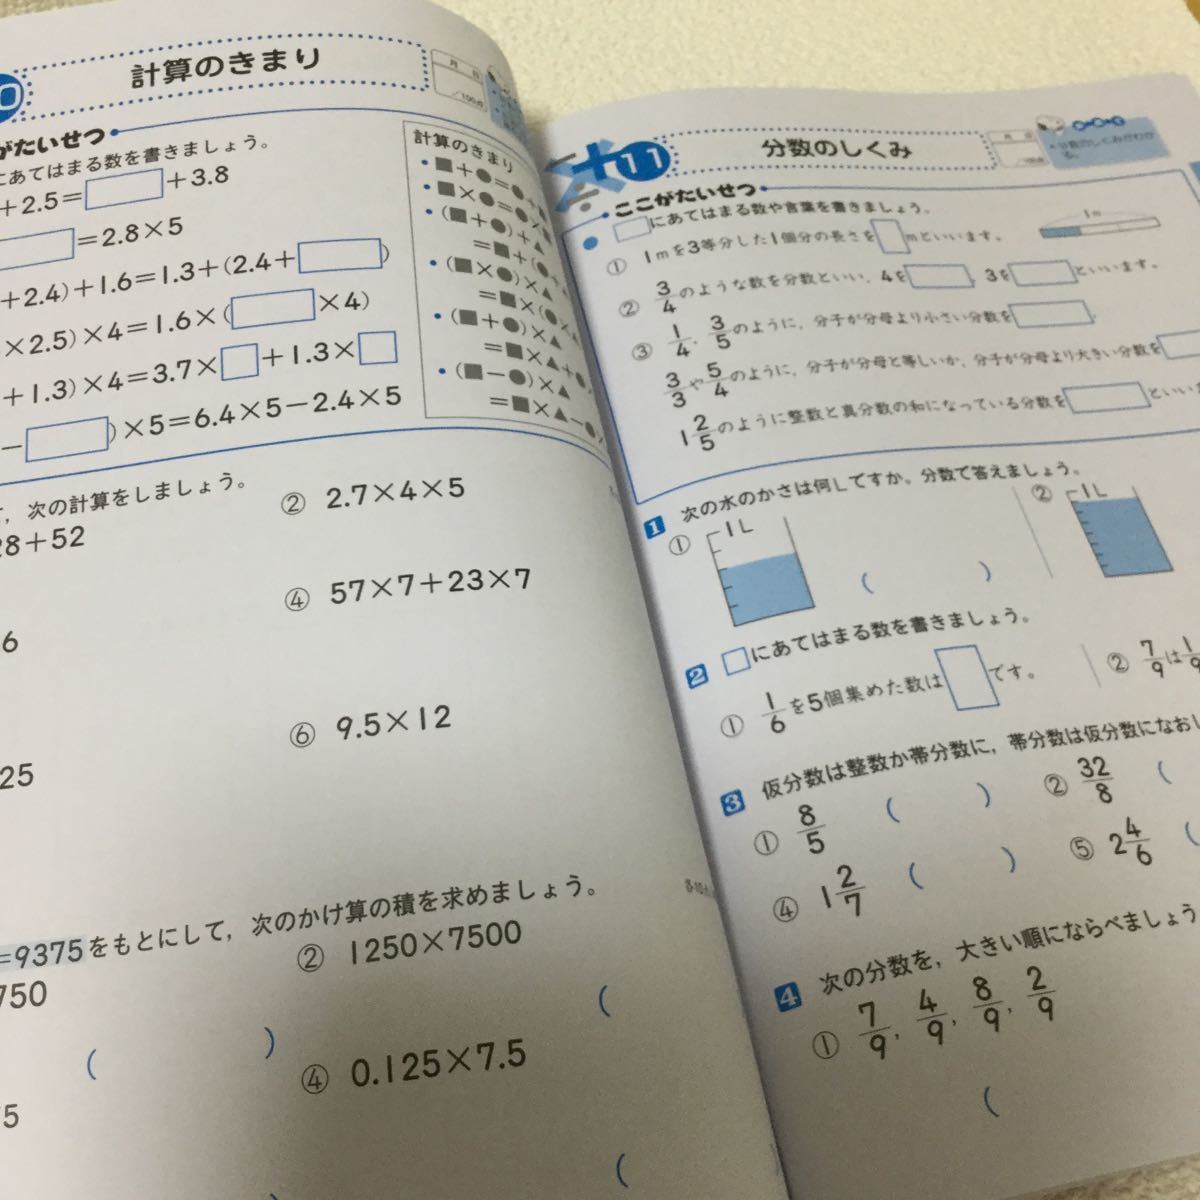 計算のきまり
月 日
/100点
がたいせつ
にあてはまる数を書きましょう。
+2.5= +3.8
=2.8×5
+2.4)+1.6=1.3+(2.4+ )
×2.5)×4=1.6×( ×4)
+1.3)×4=3.7× +1.3×
- )×5=6.4×5-2.4×5
計算のきまり
・■+●=●+
・■×●=●×
・(■+●)+▲
=■+(●+
・(■×●)×▲
=■×(●×
・(■+●)×▲
=■×▲+●
・(■-●)×▲
=■×▲-●
次の計算をしましょう。
28+52
② 2.7×4×5
④ 57×7+23×7
6
⑥ 9.5×12
25
=9375をもとにして,次のかけ算の積を求めましょう。
750
② 1250×7500
( )
(
④ 0.125×7.5
5
(
11
分数のしくみ
月 日
分数のしくみがわか
る。
ここがたいせつ
□にあてはまる数や言葉を書きましょう。
① 1mを3等分した1個分の長さを□mといいます。
1m
② 3/4のような数を分数といい,4を□,3を□といいます。
③ 1/4,3/5のように,分子が分母より小さい分数を□,
3/3や5/4のように,分子が分母と等しいか,分子が分母より大きい分数を□
1 2/5のように整数と真分数の和になっている分数を□といい
1 次の水のかさは何Lですか。分数で答えましょう。
① 1L ( )
② 1L
2 □にあてはまる数を書きましょう。
① 1/6を5個集めた数は□です。
② 7/9は1/9
3 仮分数は整数か帯分数に,帯分数は仮分数になおし
① 8/5 ( )
② 32/8 (
④ 1 2/7 ( )
⑤ 2 4/6 (
4 次の分数を,大きい順にならべましょう
① 7/9,4/9,8/9,2/9
(